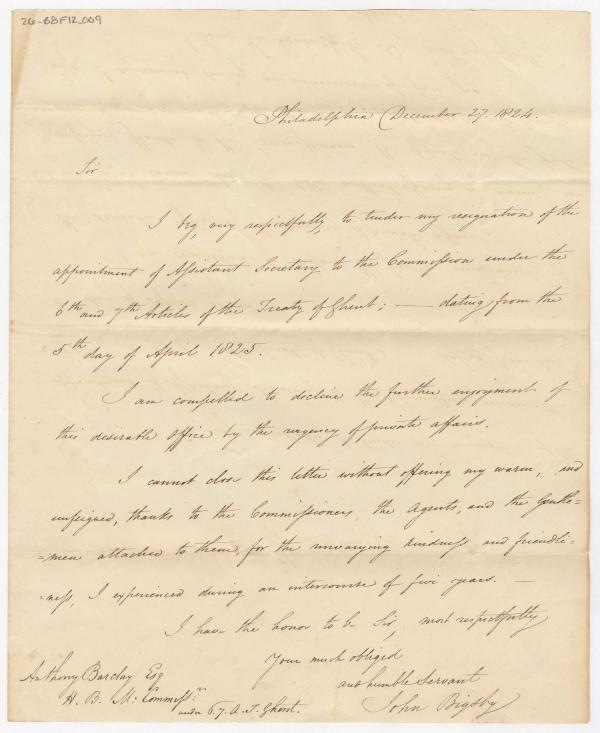 26-BBF12_009
Philadelphia December 27. 1824.
Sir
I beg, very respectfully, to tender my resignation of the
appointment of Assistant Secretary to the Commission under the
6th and 7th Articles of the Treaty of Ghent; — dating from the
5th day of April 1825.
I am compelled to decline the further enjoyment of
this desirable office by the urgency of private affairs.
I cannot close this letter without offering my warm, and
unfeigned, thanks to the Commissioners, the Agents, and the Gentle=
=men attached to them, for the unvarying kindness and friendli=
=ness, I experienced during an intercourse of five years. —
I have the honor to be Sir, most respectfully
Your much obliged
and humble Servant
John Bigsby
Anthony Barclay Esq
H. B. M. Commissr.
under 6. 7. A. T. Ghent.